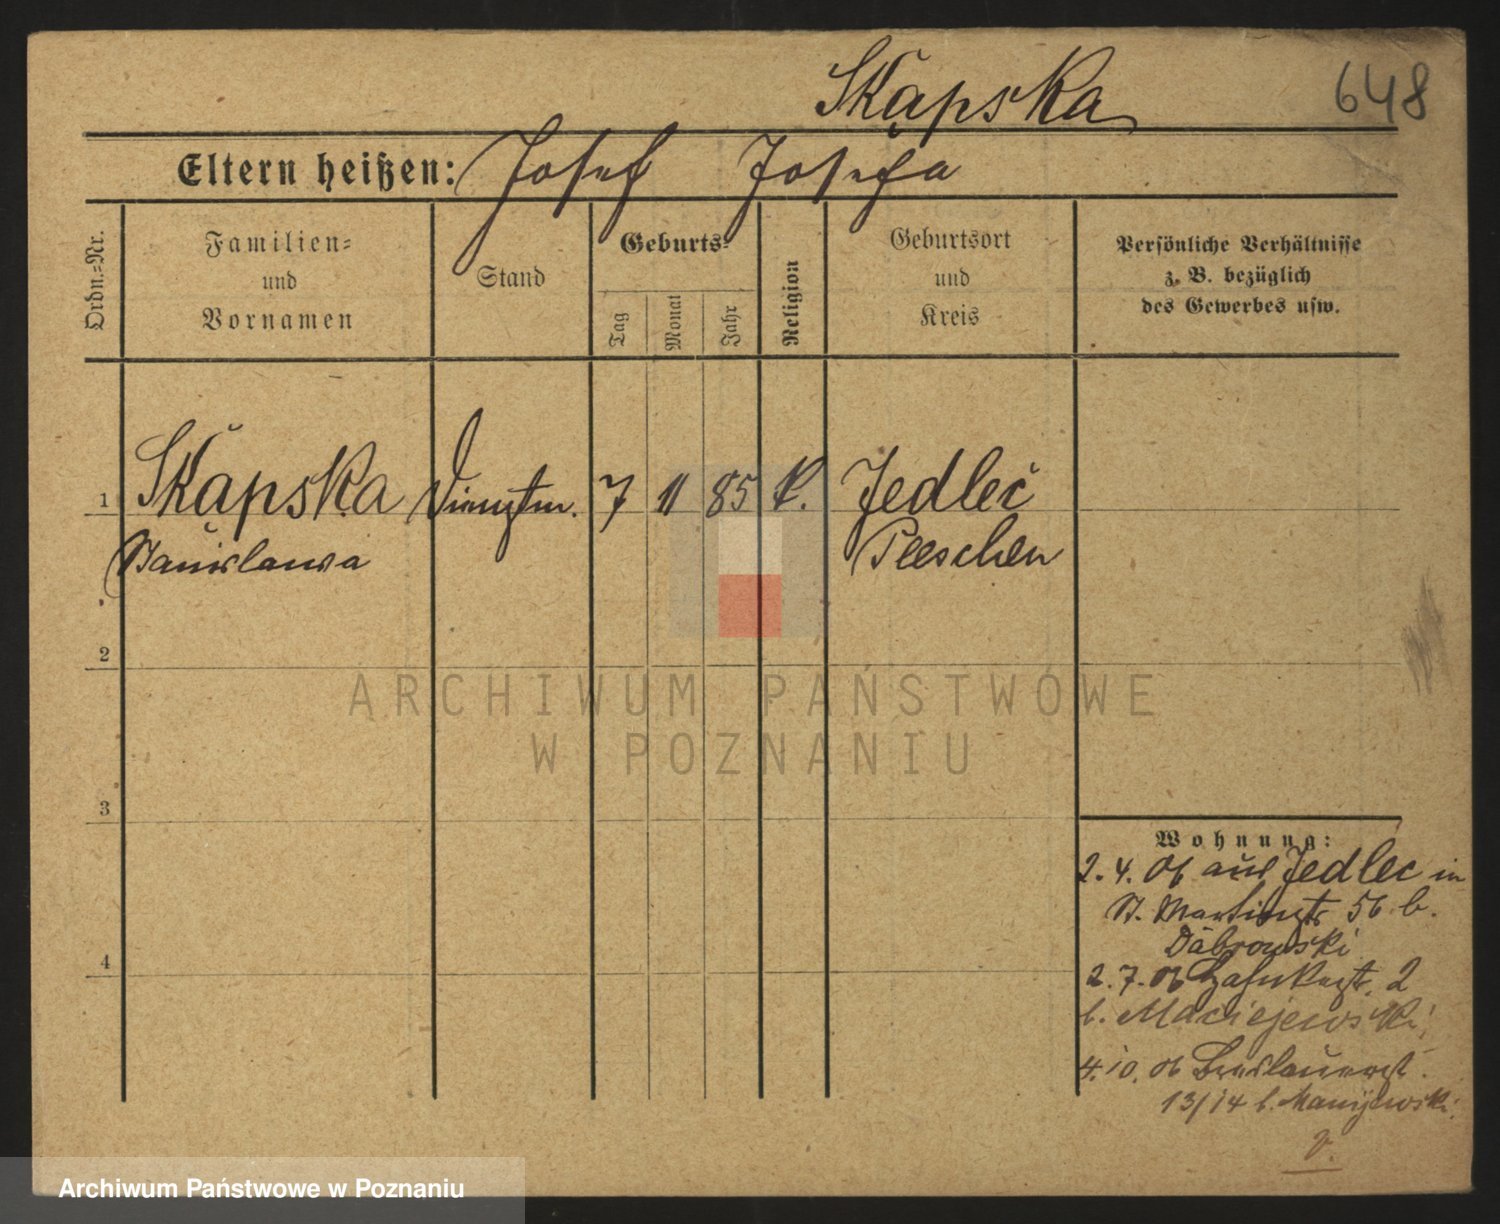 Skąpska
648
Eltern heißen: Josef Josefa
Ordn.-Nr.
Familien-
und
Vornamen
Stand
Geburts-
Tag
Monat
Jahr
Religion
Geburtsort
und
Kreis
Persönliche Verhältnisse
z. B. bezüglich
des Gewerbes usw.
1 Skąpska Dienstm. 7 11 85 k. Jedleč
Stanislawa Pleschen
2
3
4
Wohnung:
2. 4. 06 aus Jedlec in
St. Martinstr 56 b.
Dąbrowski
2. 7. 06 2
b. Maciejewski
4. 10. 06 Breslauerst.
13/14 b.
ARCHIWUM PAŃSTWOWE
W POZNANIU
Archiwum Państwowe w Poznaniu